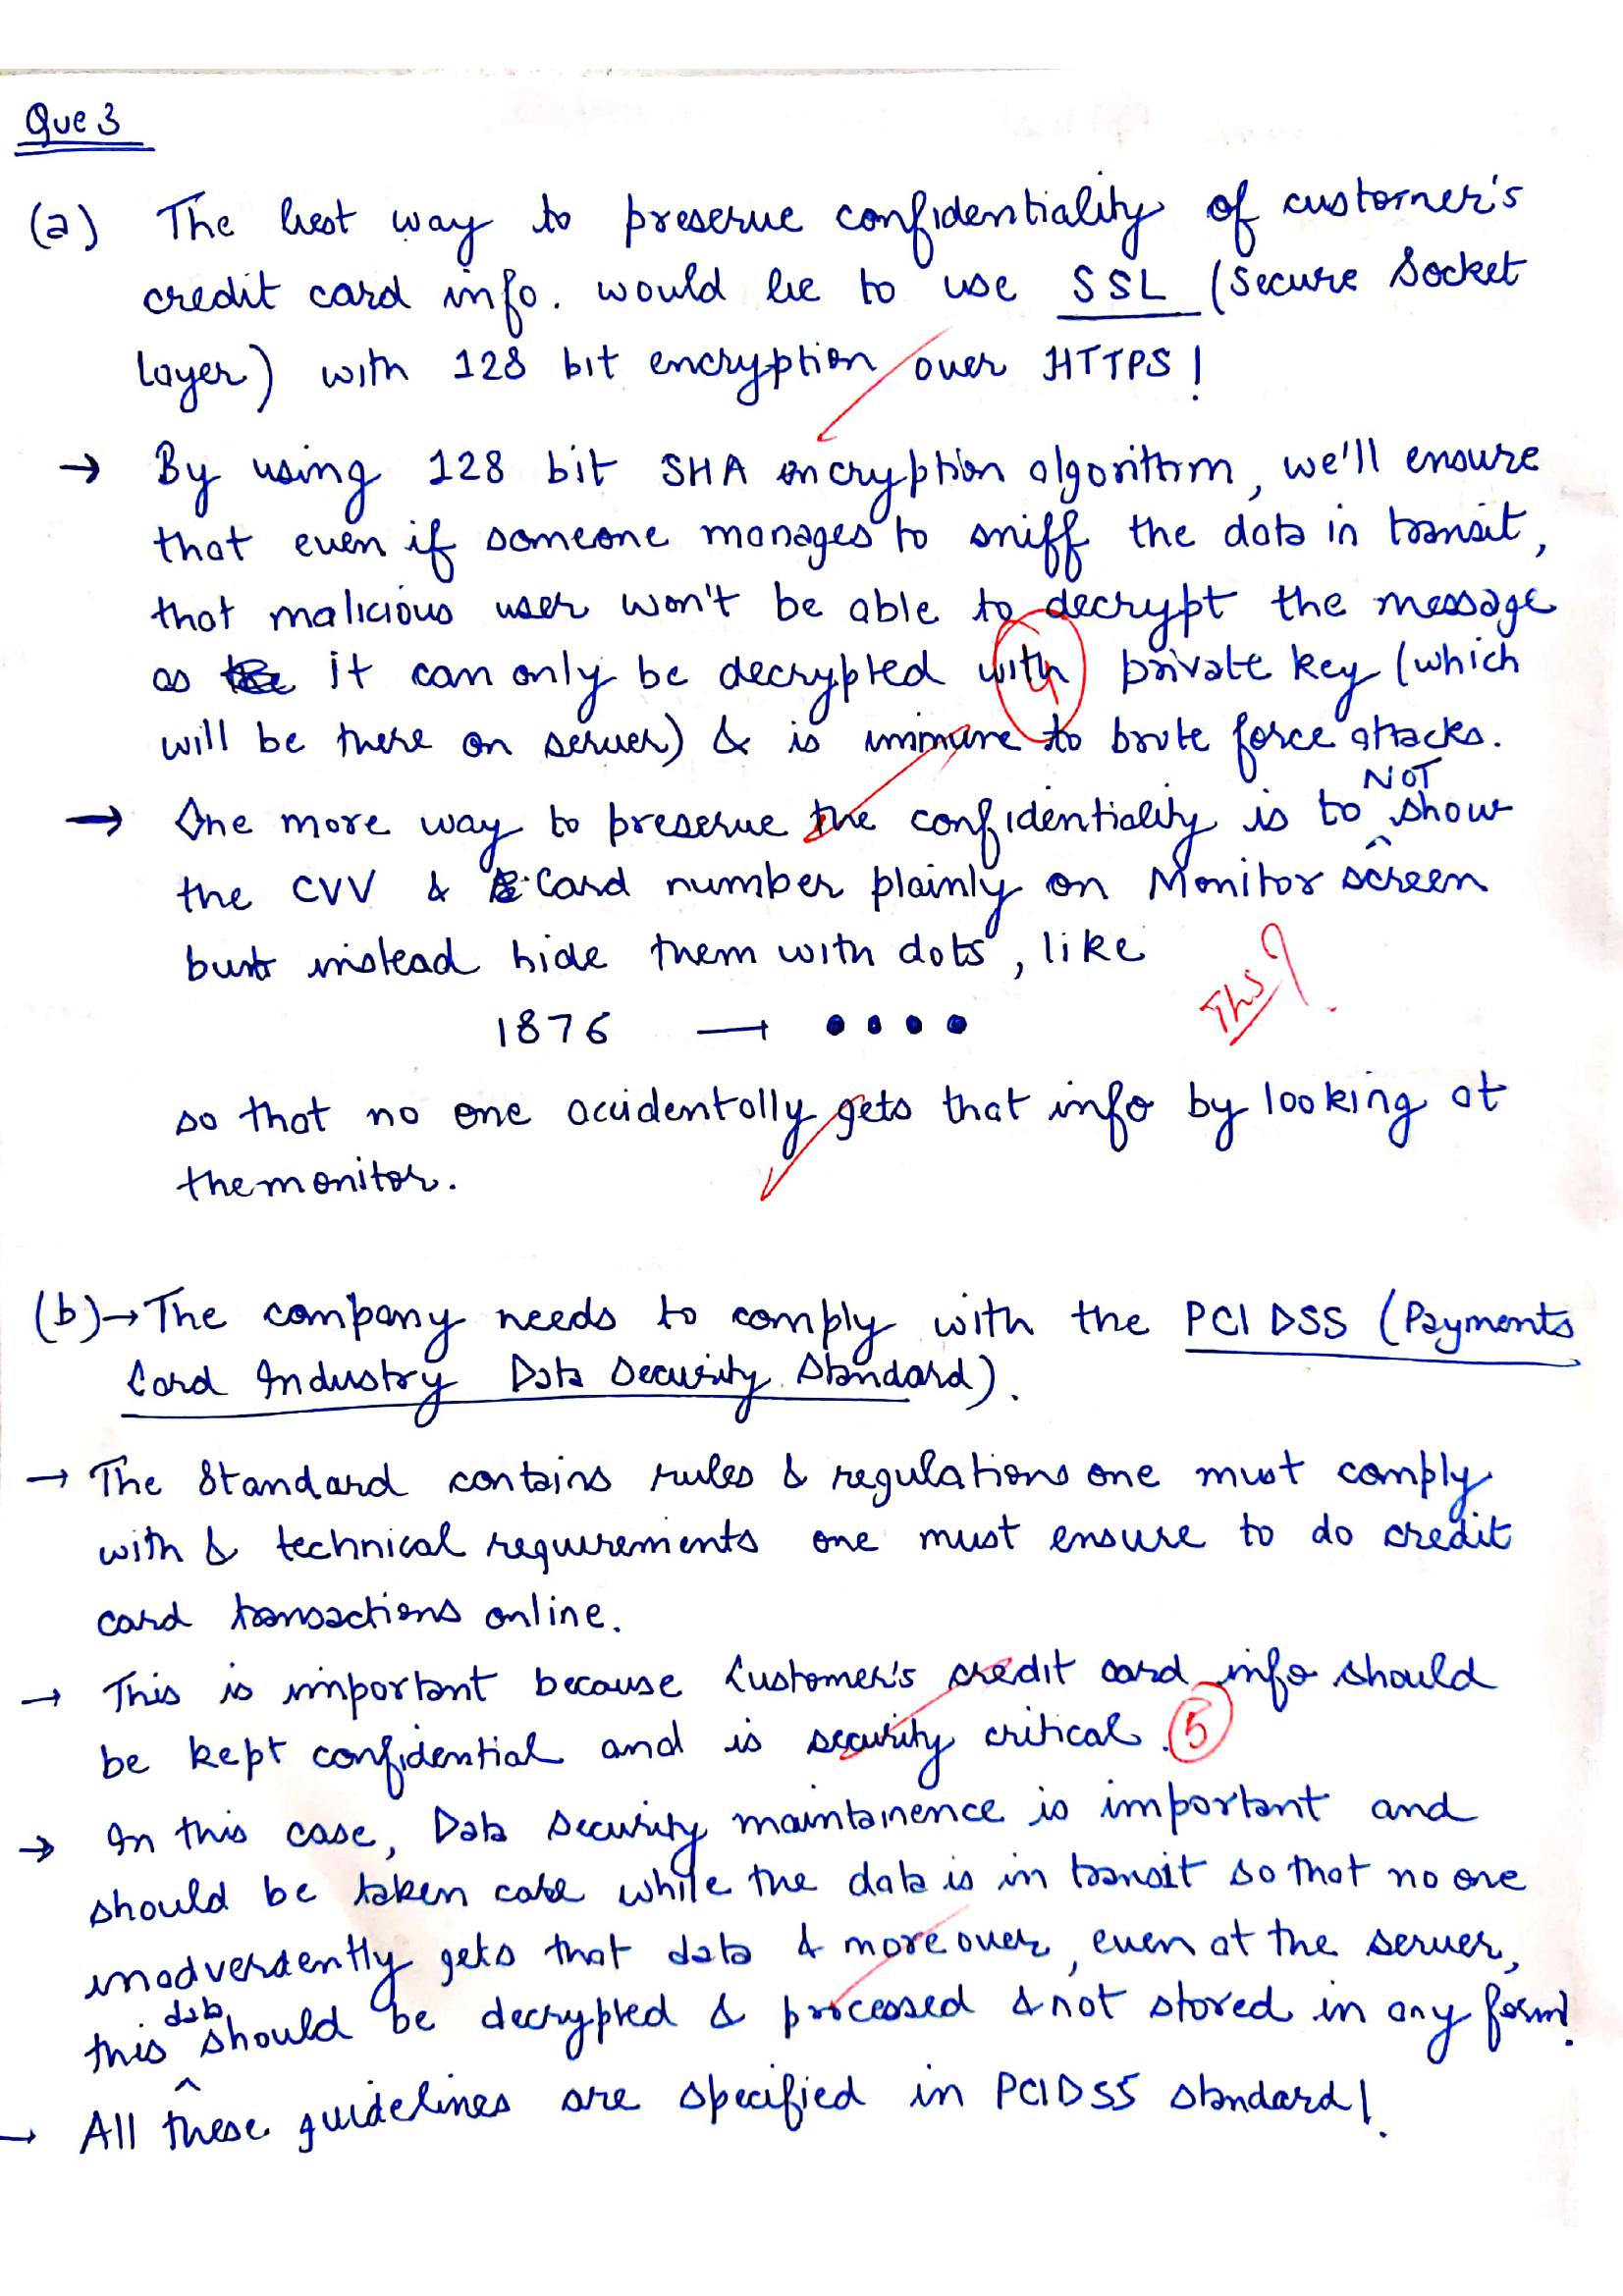 Que 3
(a) The best way to preserve confidentiality of customer's
credit card info. would be to use SSL (Secure Socket
layer) with 128 bit encryption over HTTPS!
→ By using 128 bit SHA encryption algorithm, we'll ensure
that even if someone manages to sniff the data in transit,
that malicious user won't be able to decrypt the message
as it can only be decrypted with private key (which
4
will be there on server) & is immune to brute force attacks.
→ One more way to preserve the confidentiality is to NOT show
the CVV & Card number plainly on Monitor screen
but instead hide them with dots, like
1876 → ● ● ● ●
This?
so that no one accidentally gets that info by looking at
the monitor.
(b) → The company needs to comply with the PCI DSS (Payments
Card Industry Data Security Standard).
→ The Standard contains rules & regulations one must comply
with & technical requirements one must ensure to do credit
card transactions online.
→ This is important because Customer's credit card info should
be kept confidential and is security critical. 5
→ In this case, Data Security maintainence is important and
should be taken care while the data is in transit so that no one
inadverdently gets that data & moreover, even at the server,
this data should be decrypted & processed & not stored in any form.
→ All these guidelines are specified in PCI DSS standard!